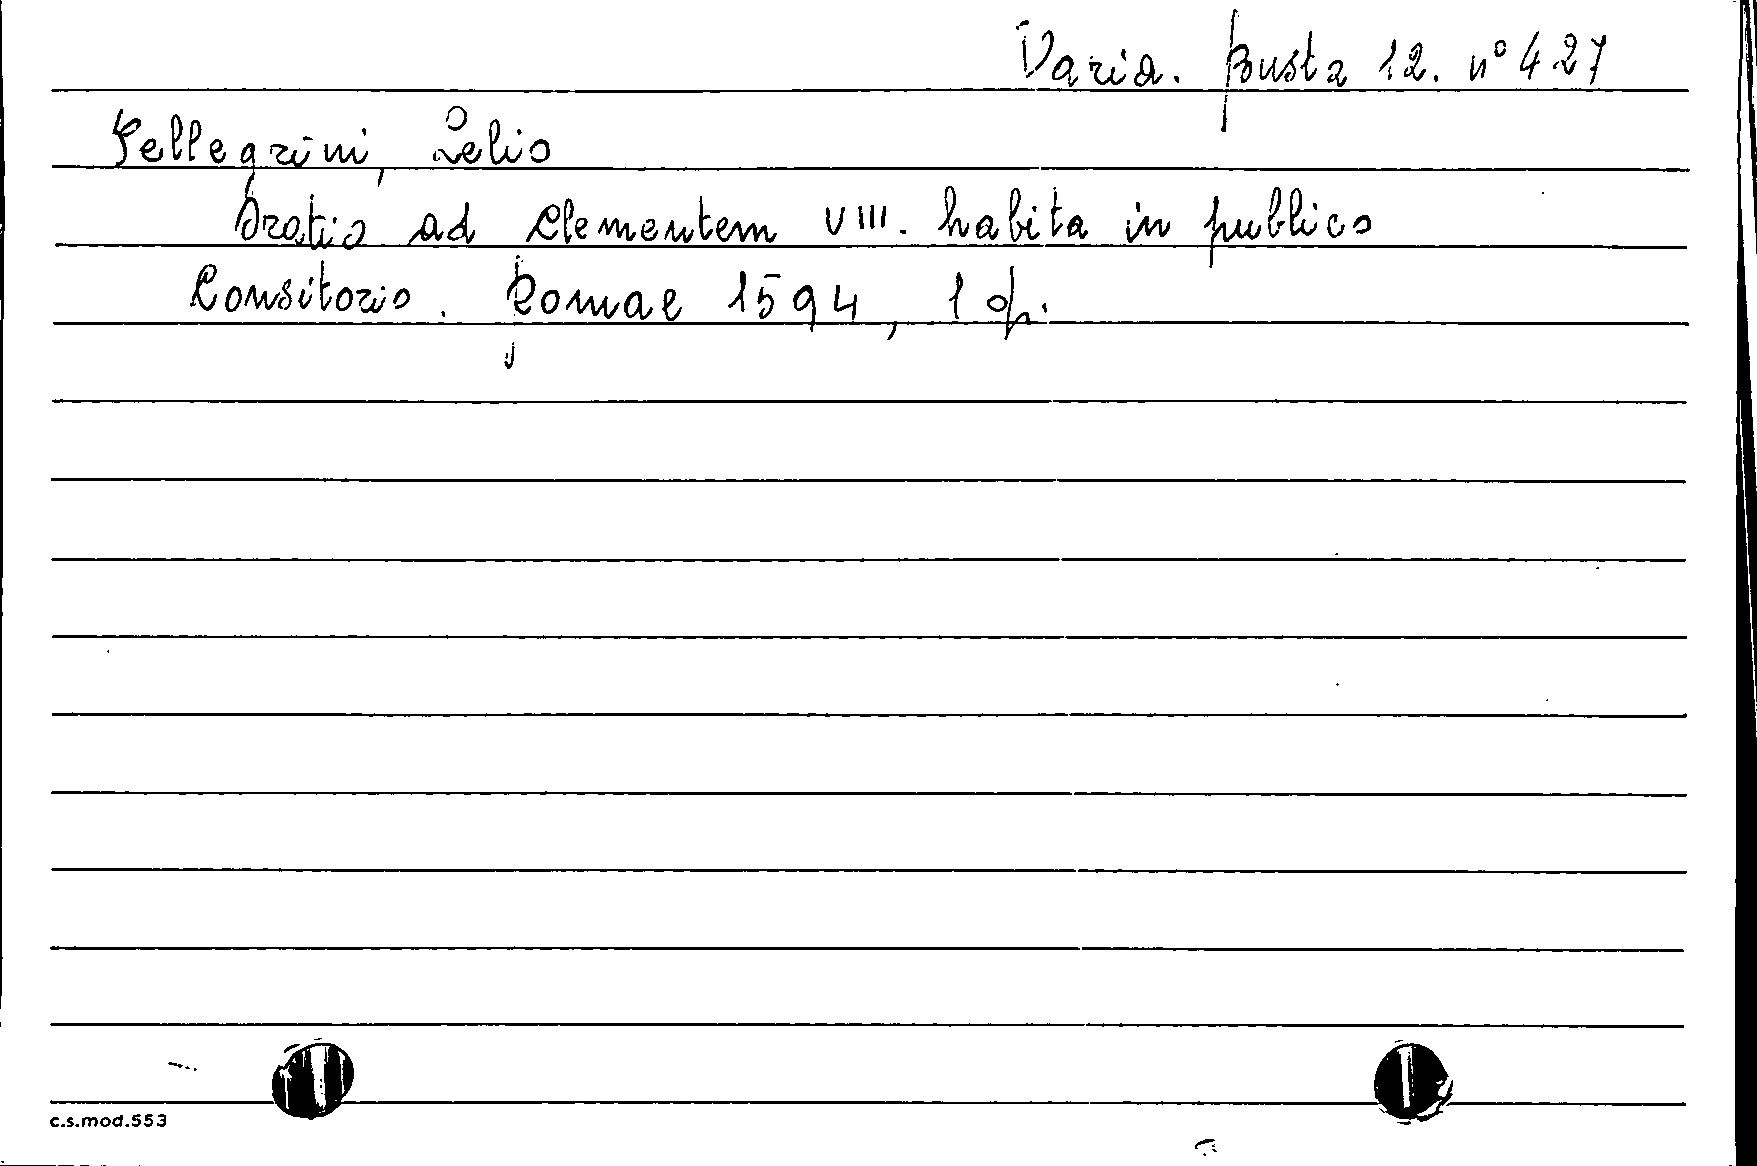 Varia. Busta 12. n° 427
Pellegrini, Lelio
Oratio ad Clementem VIII. habita in publico
Consitorio. Romae 1594, 1 op.
c.s.mod.553